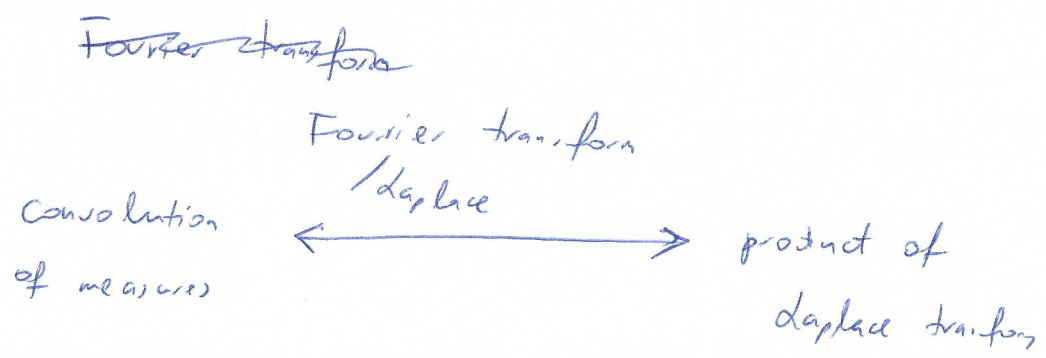 Fourier transform
Fourier transform
/Laplace
convolution
of measures
product of
Laplace transform